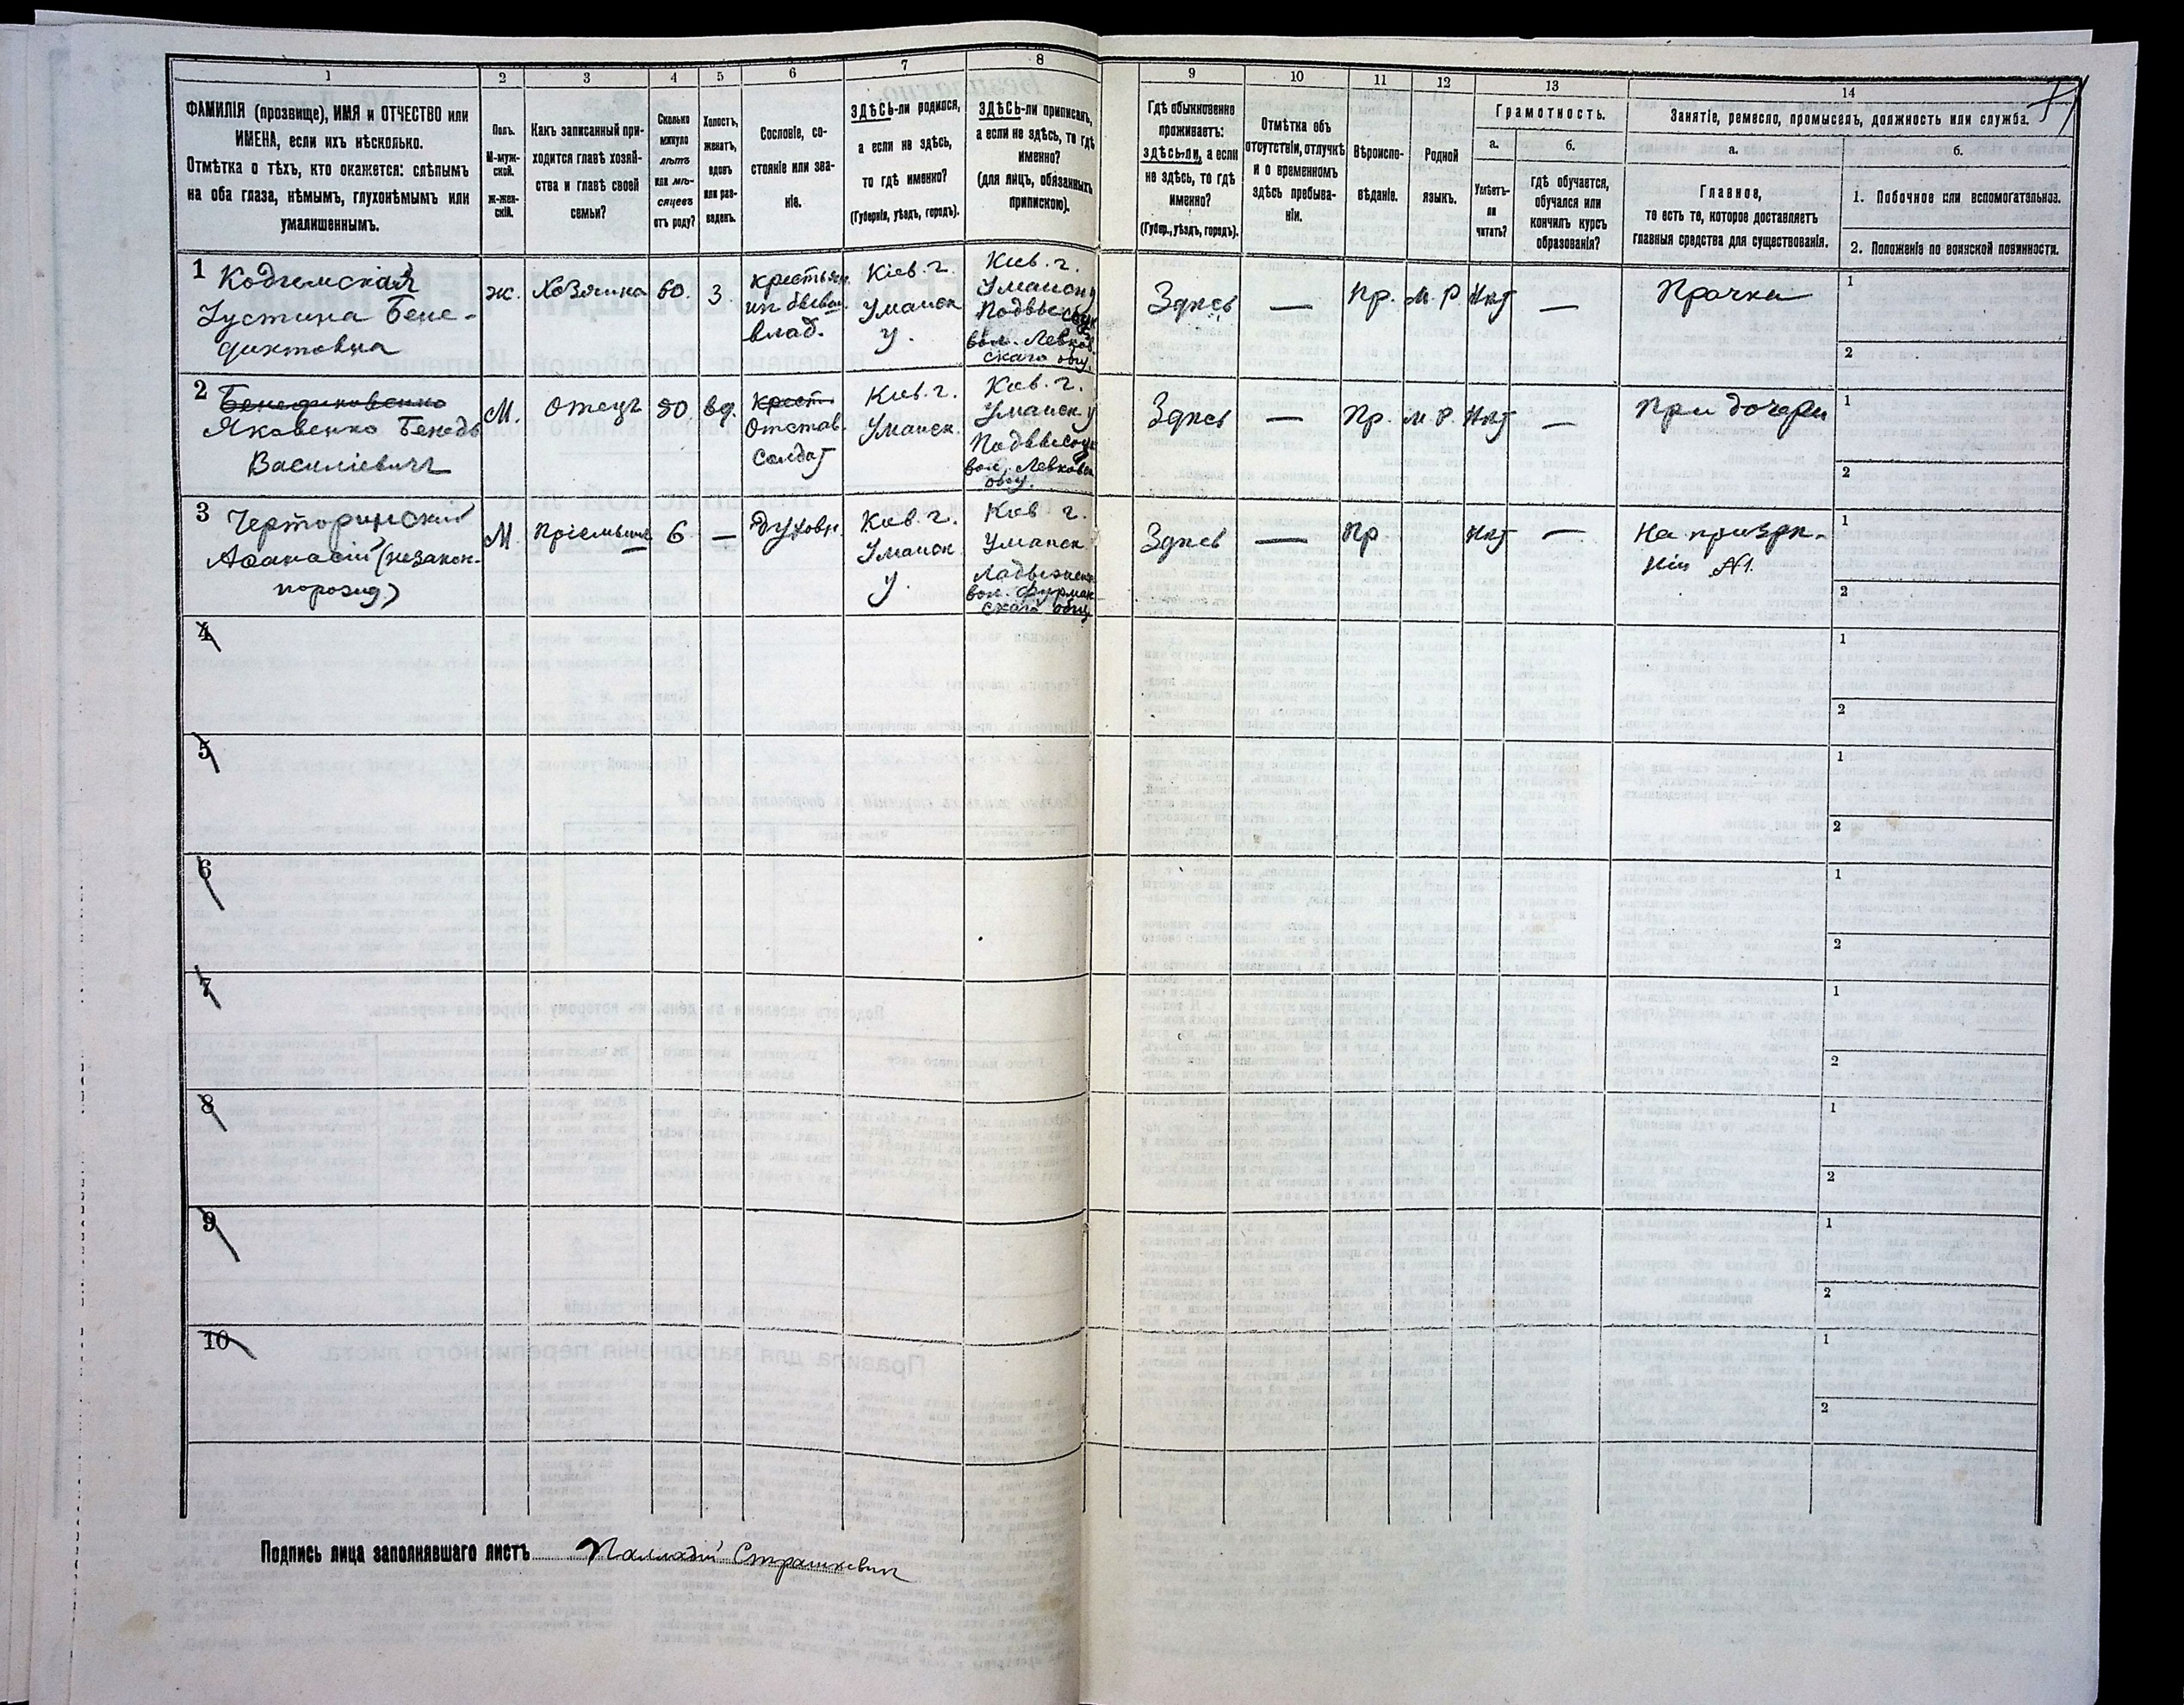 1 2 3 4 5 6 7 8 9 10 11 12 13 14
ФАМИЛІЯ (прозвище), ИМЯ и ОТЧЕСТВО или
ИМЕНА, если ихъ нѣсколько.
Отмѣтка о тѣхъ, кто окажется: слѣпымъ
на оба глаза, нѣмымъ, глухонѣмымъ или
умалишеннымъ.
Полъ.
М-муж-
ской.
ж-жен-
скій.
Какъ записанный при-
ходится главѣ хозяй-
ства и главѣ своей
семьи?
Сколько
минуло
лѣтъ
или мѣ-
сяцевъ
отъ роду?
Холостъ,
женатъ,
вдовъ
или раз-
веденъ.
Сословіе, со-
стояніе или зва-
ніе.
ЗДѢСЬ-ли родился,
а если не здѣсь,
то гдѣ именно?
(Губернія, уѣздъ, городъ).
ЗДѢСЬ-ли приписанъ,
а если не здѣсь, то гдѣ
именно?
(для лицъ, обязанныхъ
припискою).
Гдѣ обыкновенно
проживаетъ:
здѣсь-ли, а если
не здѣсь, то гдѣ
именно?
(Губер., уѣздъ, городъ).
Отмѣтка объ
отсутствіи, отлучкѣ
и о временномъ
здѣсь пребыва-
ніи.
Вѣроиспо-
вѣданіе.
Родной
языкъ.
Грамотность.
а.
Умѣетъ-
ли
читать?
б.
гдѣ обучается,
обучался или
кончилъ курсъ
образованія?
Занятіе, ремесло, промыселъ, должность или служба.
а.
Главное,
то есть те, которое доставляетъ
главныя средства для существованія.
б.
1. Побочное или вспомогательное.
2. Положеніе по воинской повинности.
1 Кодымская
Іустина Бене-
диктовна
ж.
Хозяйка
60.
3.
крестьян.
из бывш.
влад.
Кіев. г.
Уманск
у.
Кіев. г.
Уманск у
Подвысоцк
вол. Левков
скаго общ.
Здѣсь
—
Пр.
М. Р
Нѣт
—
Прачка
1
2
2 Бенедиковенко
Яковенко Бенед
Василіевичъ
М.
Отецъ
80.
вд.
Крест.
Отстав.
Солдат
Кіев. г.
Уманск.
Кіев. г.
Уманск. у
Подвысоцк
вол. Левковск
общ.
Здѣсь
—
Пр.
М. Р.
Нѣт
—
При дочери
1
2
3 Черторинскій
Афанасій (незакон-
норожд.)
М.
Пріемышъ
6
—
Духовн.
Кіев. г.
Уманск.
у.
Кіев г.
Уманск.
Ладыженск
вол. Фурман
скаго общ.
Здѣсь
—
Пр
Нѣт
—
На призрѣ-
ніи №1.
1
2
4
1
2
5
1
2
6
1
2
7
1
2
8
1
2
9
1
2
10
1
2
Подпись лица заполнявшаго листъ Палладій Страшкевич